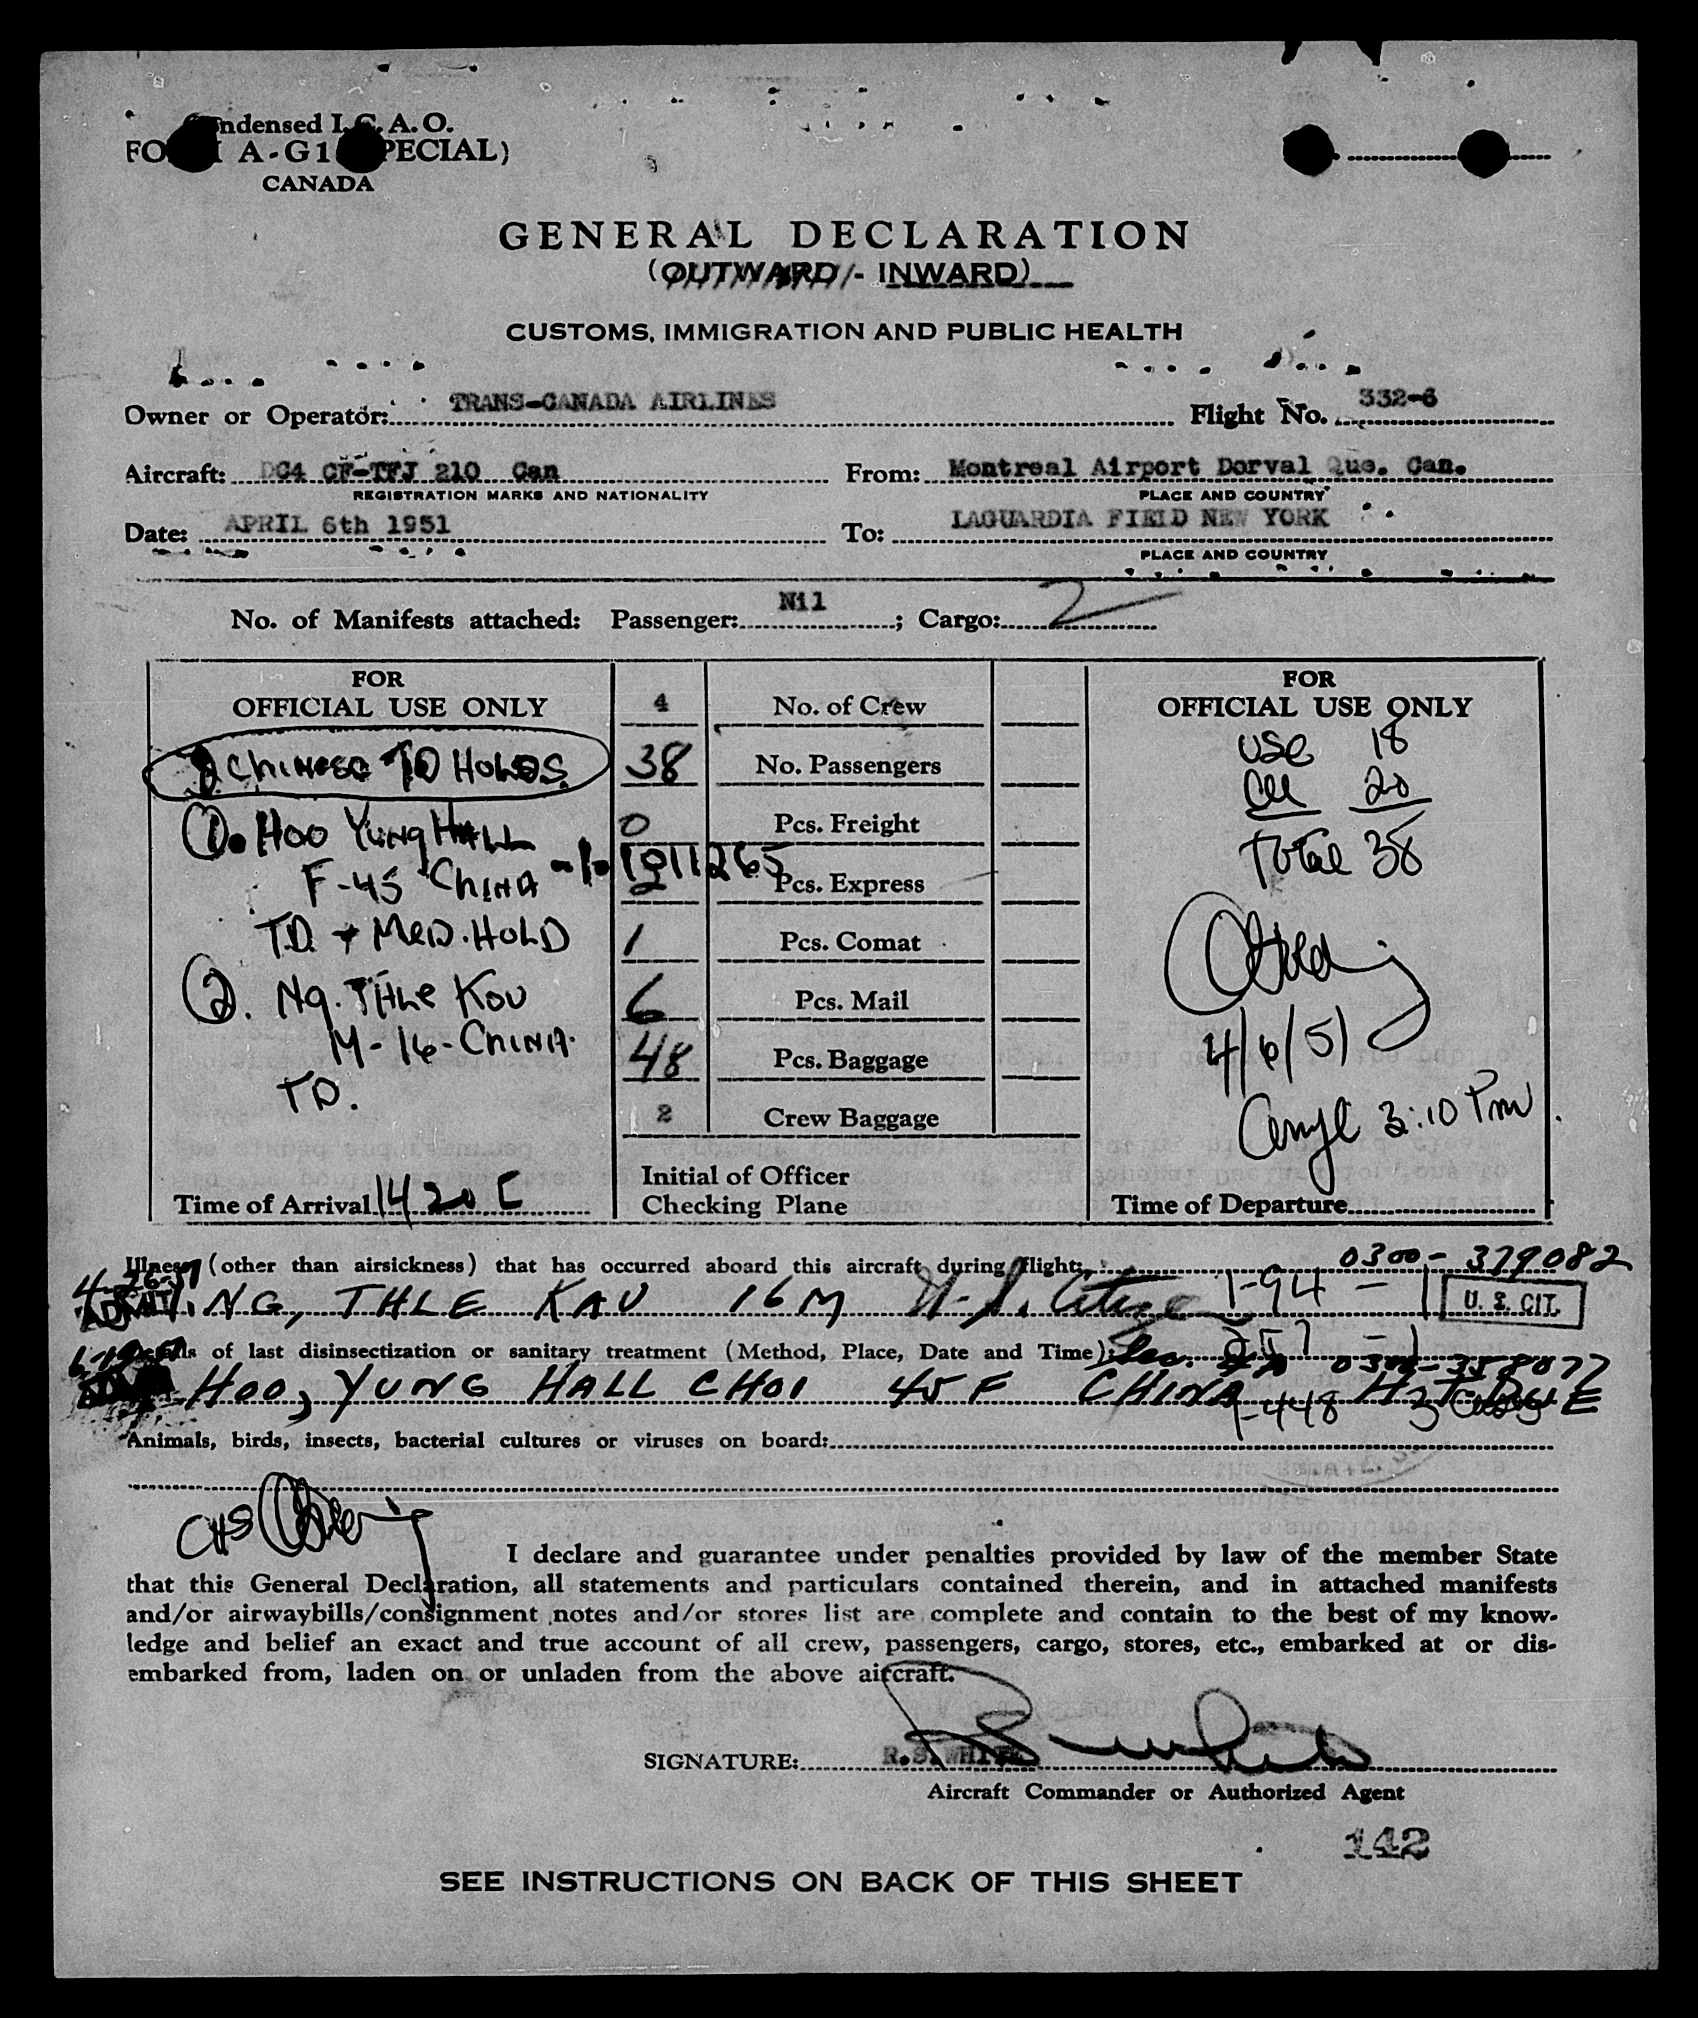 Condensed I.C.A.O.
FORM A-G1 (SPECIAL)
CANADA
GENERAL DECLARATION
(OUTWARD - INWARD)
CUSTOMS, IMMIGRATION AND PUBLIC HEALTH
Owner or Operator: TRANS-CANADA AIRLINES Flight No. 332-6
Aircraft: DC4 CF-TFJ 210 Can From: Montreal Airport Dorval Que. Can.
REGISTRATION MARKS AND NATIONALITY PLACE AND COUNTRY
Date: APRIL 6th 1951 To: LAGUARDIA FIELD NEW YORK
PLACE AND COUNTRY
No. of Manifests attached: Passenger: Nil ; Cargo: 2
FOR
OFFICIAL USE ONLY
2 CHINESE TD HOLDS.
1. HOO YUNG HALL
F-45 CHINA -1-1911265
T.D. + MED. HOLD
2. NG. THLE KOU
M-16-CHINA.
TD.
Time of Arrival 1420 C
4 No. of Crew
38 No. Passengers
0 Pcs. Freight
2 Pcs. Express
1 Pcs. Comat
6 Pcs. Mail
48 Pcs. Baggage
2 Crew Baggage
Initial of Officer
Checking Plane
FOR
OFFICIAL USE ONLY
USC 18
all 20
Total 38
4/6/51
3:10 Pm
Time of Departure
Illness (other than airsickness) that has occurred aboard this aircraft during flight: 0300-379082
4-26-51
ADMIT. NG, THLE KAU 16 M U.S. Citizen 1-94-1 U.S. CIT.
Details of last disinsectization or sanitary treatment (Method, Place, Date and Time): 257-1
6-19-51 0300-358077
HOO, YUNG HALL CHOI 45 F CHINA
1-448
Animals, birds, insects, bacterial cultures or viruses on board:
CHS
I declare and guarantee under penalties provided by law of the member State
that this General Declaration, all statements and particulars contained therein, and in attached manifests
and/or airwaybills/consignment notes and/or stores list are complete and contain to the best of my know-
ledge and belief an exact and true account of all crew, passengers, cargo, stores, etc., embarked at or dis-
embarked from, laden on or unladen from the above aircraft.
SIGNATURE: R.S. WHITE
Aircraft Commander or Authorized Agent
142
SEE INSTRUCTIONS ON BACK OF THIS SHEET